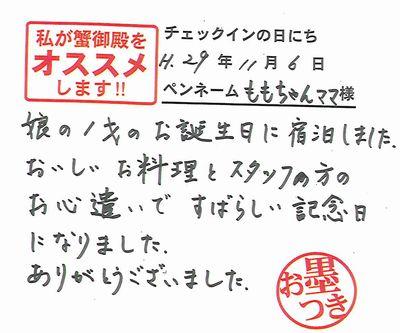 私が蟹御殿を
オススメ
します!!
チェックインの日にち
H.29年11月6日
ペンネームももちゃんママ様
娘の1才のお誕生日に宿泊しました。
おいしいお料理とスタッフの方の
お心遣いですばらしい記念日
になりました。
ありがとうございました。
お墨
つき